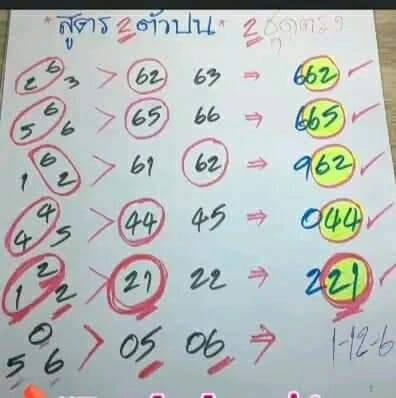 * สูตร 2 ตัวบน * 2 ชุดตรง
6
2 3 > 62 63 ⇒ 662 ✓
5 6 6 > 65 66 ⇒ 665 ✓
6
1 2 > 61 62 ⇒ 962 ✓
4
4 5 > 44 45 ⇒ 044 ✓
2
1 2 > 21 22 ⇒ 221 ✓
0
5 6 > 05 06 ⇒ 1-12-6